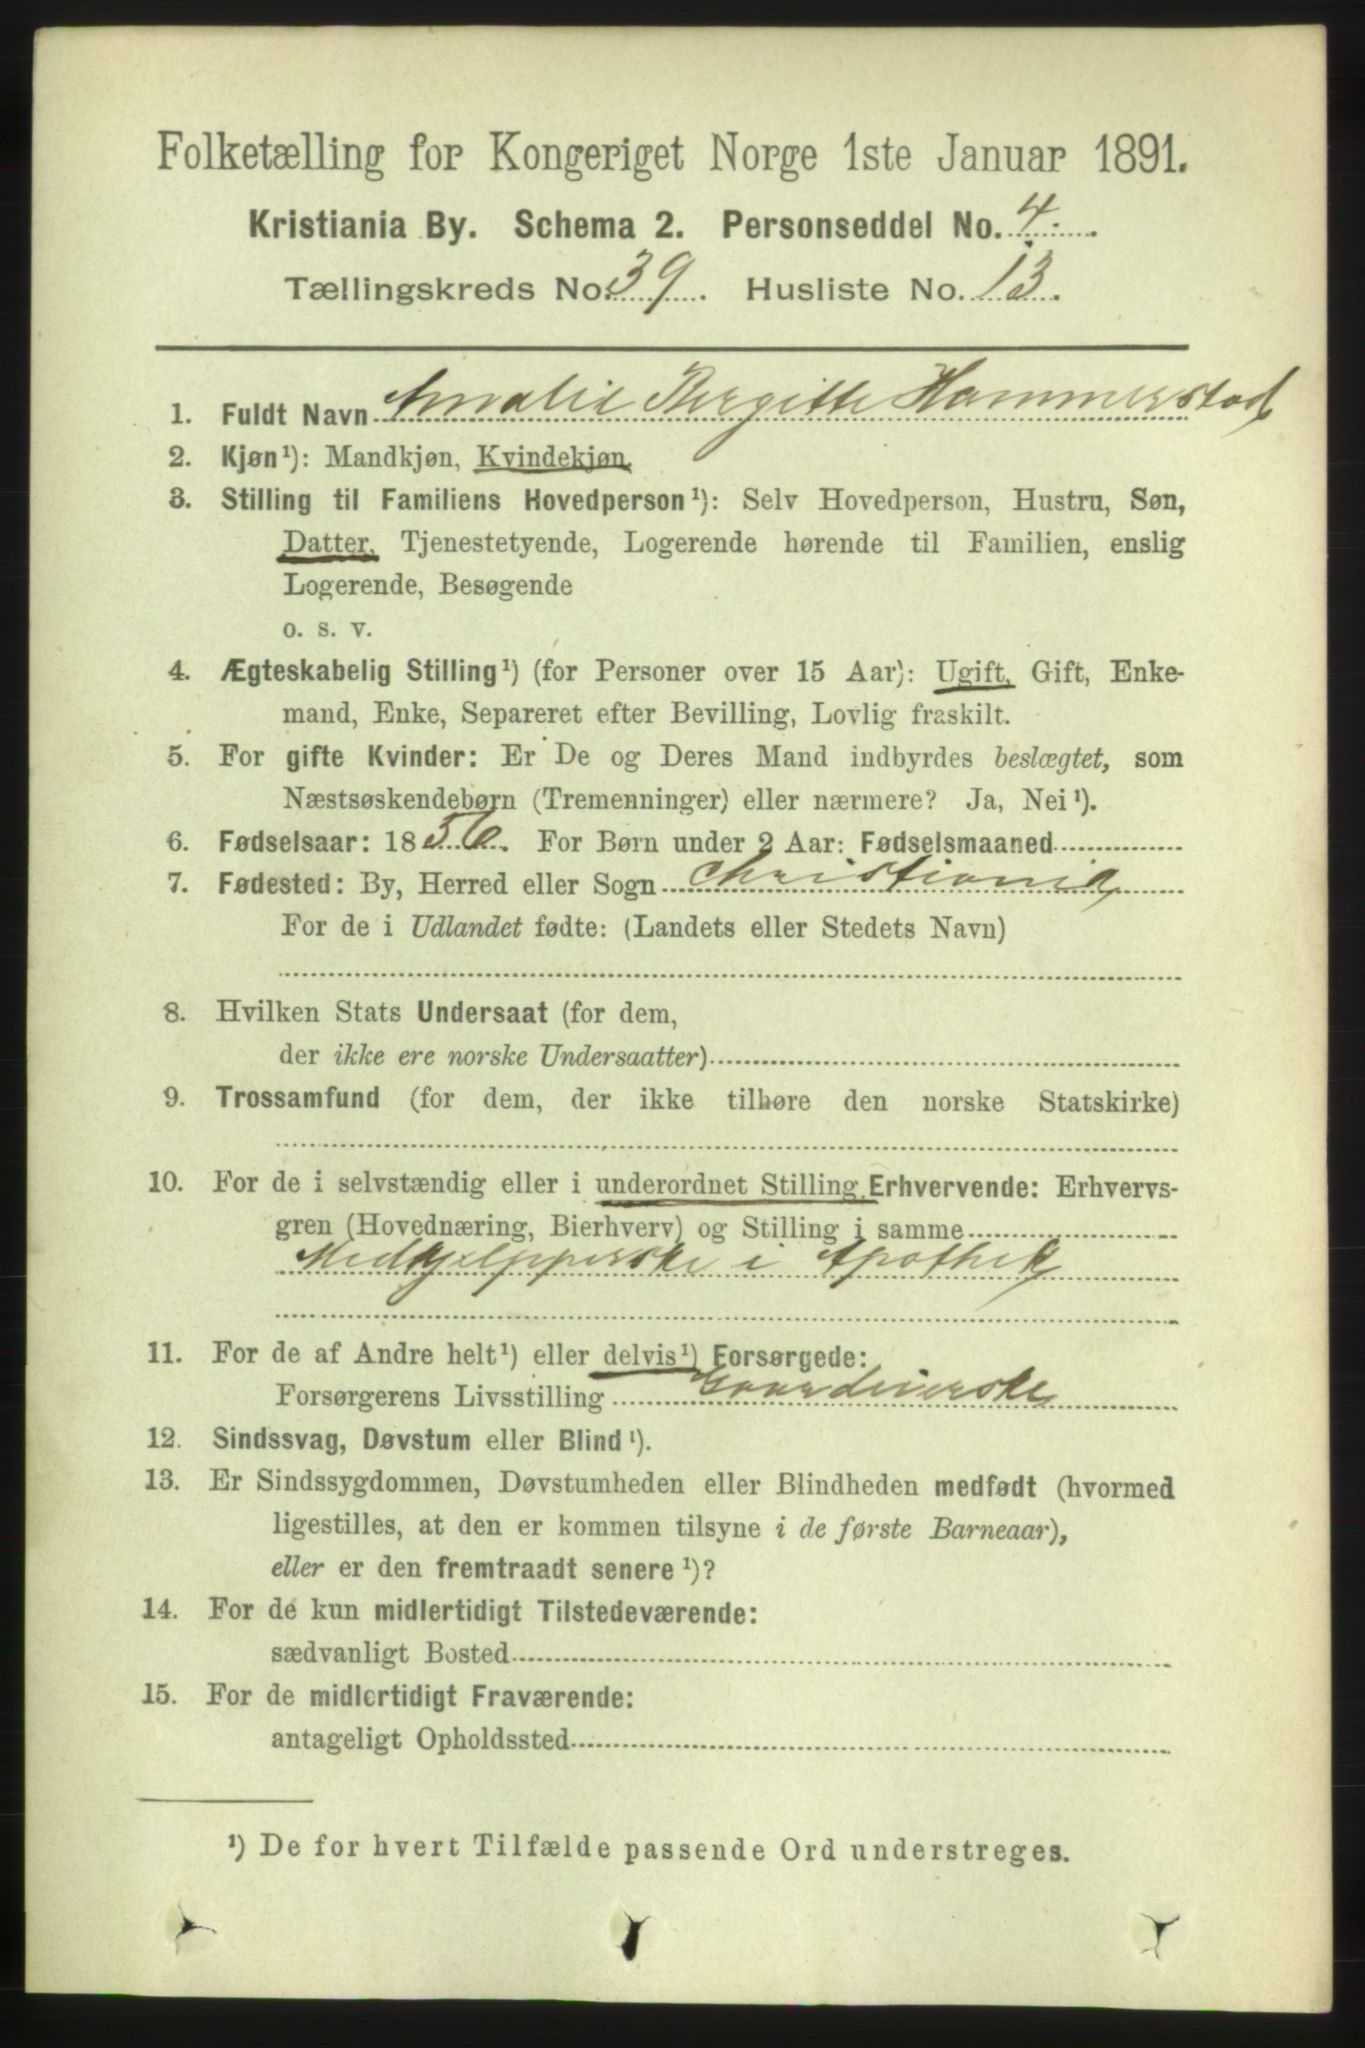 Folketælling for Kongeriget Norge 1ste Januar 1891.
Kristiania By. Schema 2. Personseddel No. 4.
Tællingskreds No. 39. Husliste No. 13.
1. Fuldt Navn Amalie Bergitte Hammerstad
2. Kjøn¹): Mandkjøn, Kvindekjøn.
3. Stilling til Familiens Hovedperson¹): Selv Hovedperson, Hustru, Søn,
Datter, Tjenestetyende, Logerende hørende til Familien, enslig
Logerende, Besøgende
o. s. v.
4. Ægteskabelig Stilling¹) (for Personer over 15 Aar): Ugift, Gift, Enke-
mand, Enke, Separeret efter Bevilling, Lovlig fraskilt.
5. For gifte Kvinder: Er De og Deres Mand indbyrdes beslægtet, som
Næstsøskendebørn (Tremenninger) eller nærmere? Ja, Nei¹).
6. Fødselsaar: 1856. For Børn under 2 Aar: Fødselsmaaned
7. Fødested: By, Herred eller Sogn Christiania
For de i Udlandet fødte: (Landets eller Stedets Navn)
8. Hvilken Stats Undersaat (for dem,
der ikke ere norske Undersaatter)
9. Trossamfund (for dem, der ikke tilhøre den norske Statskirke)
10. For de i selvstændig eller i underordnet Stilling Erhvervende: Erhvervs-
gren (Hovednæring, Bierhverv) og Stilling i samme
Medhjelpperske i Apothek
11. For de af Andre helt¹) eller delvis¹) Forsørgede:
Forsørgerens Livsstilling Gaardeierske
12. Sindssvag, Døvstum eller Blind¹).
13. Er Sindssygdommen, Døvstumheden eller Blindheden medfødt (hvormed
ligestilles, at den er kommen tilsyne i de første Barneaar),
eller er den fremtraadt senere¹)?
14. For de kun midlertidigt Tilstedeværende:
sædvanligt Bosted
15. For de midlertidigt Fraværende:
antageligt Opholdssted
¹) De for hvert Tilfælde passende Ord understreges.